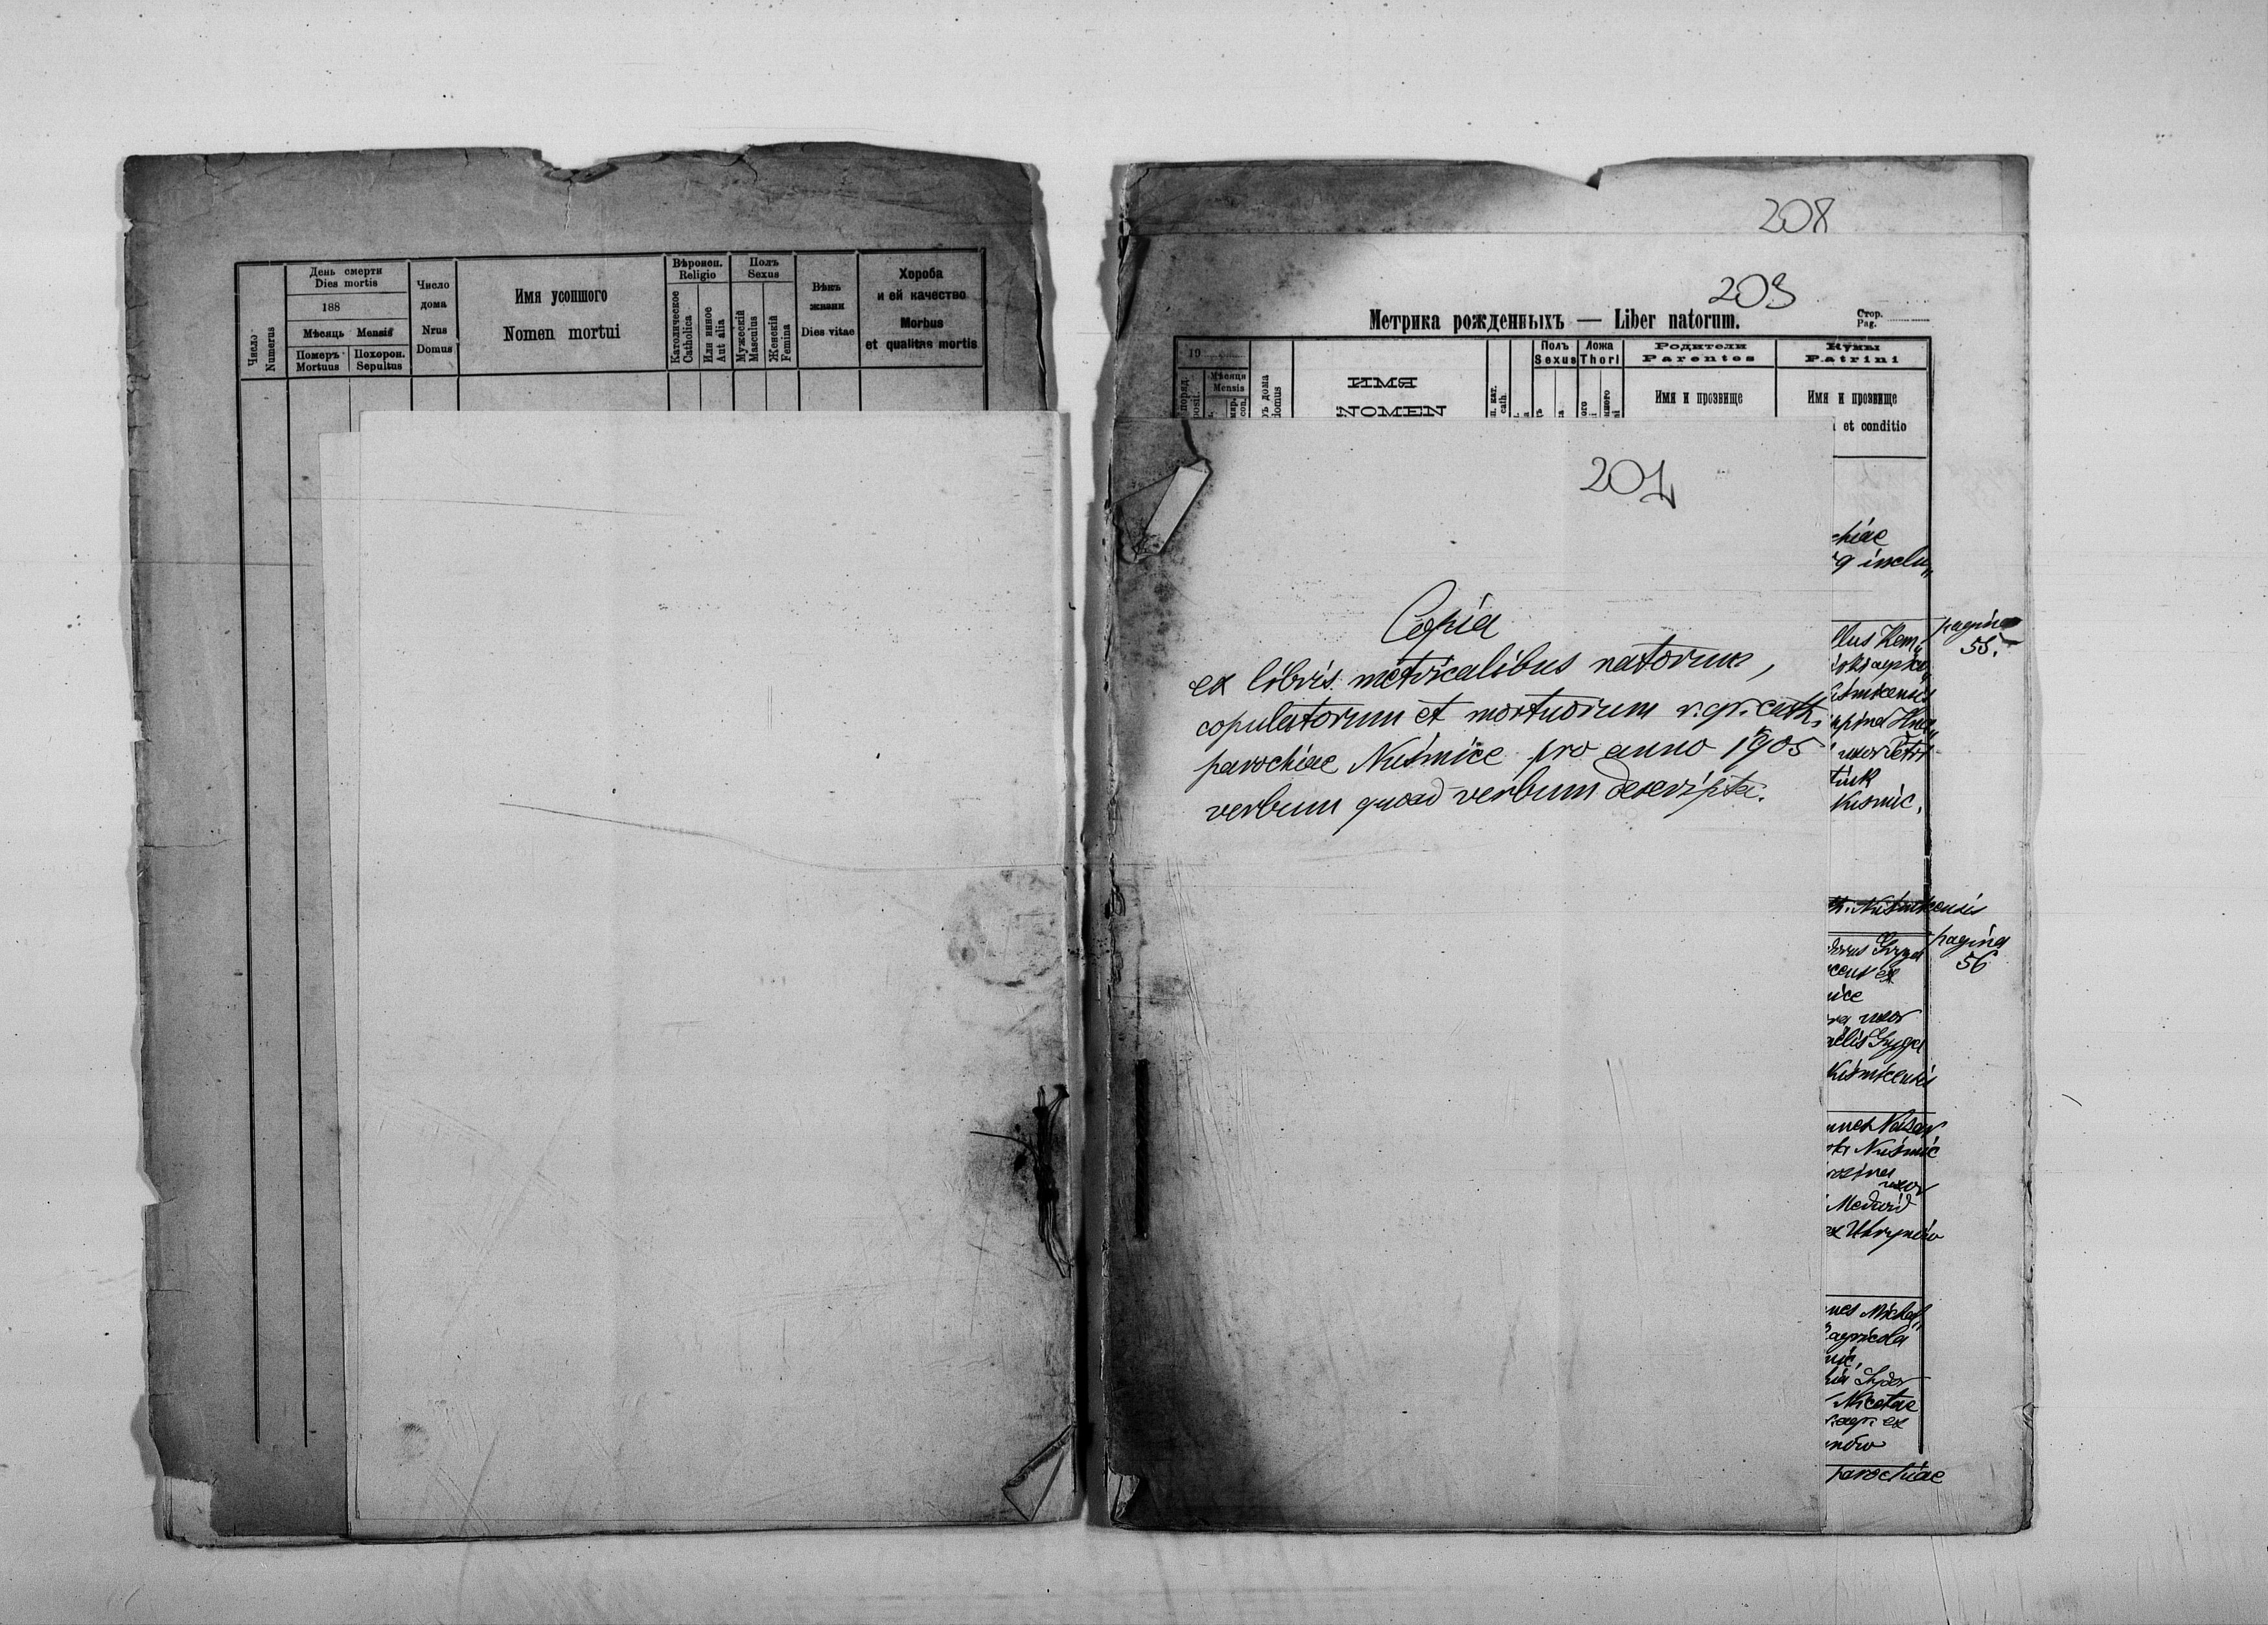 День смерти
Dies mortis
188
Мѣсяць Mensis
Померъ Mortuus
Похорон. Sepultus
Число Numerus
Число дома
Nrus Domus
Имя усопшого
Nomen mortui
Вѣроисп.
Religio
Католическое Catholica
Или инное Aut alia
Полъ
Sexus
Мужескій Masculus
Женскій Femina
Вѣкъ жизни
Dies vitae
Хороба
и ей качество
Morbus
et qualitas mortis
208
203
Метрика рожденныхъ — Liber natorum.
Стор.
Pag.
19
Мѣсяця
Mensis
дома
domus
ИМЯ
NOMEN
Полъ
Sexus
Ложа
Thori
Родители
Parentes
Имя и прозвище
Кумы
Patrini
Имя и прозвище
et conditio
201
Copia
ex libris metricalibus natorum,
copulatorum et mortuorum r. gr. cath.
parochiae Nuśmice pro anno 1905
verbum quoad verbum descripta.
pagina
55.
uxor Petri
pagina
56
uxor
Nuśmic
uxor
Medwid
ex Uhrynów
agricola
Nicetae
agr. ex
parochiae